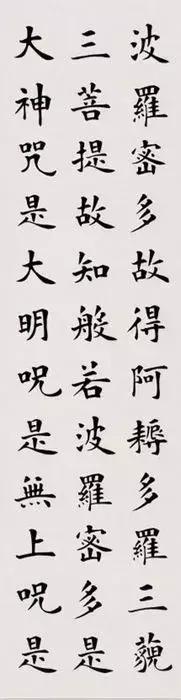 波羅密多故得阿耨多羅三藐
三菩提故知般若波羅密多是
大神咒是大明呪是無上呪是